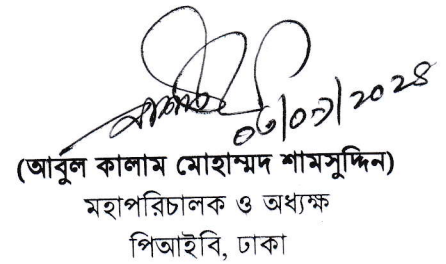 (আবুল কালাম মোহাম্মদ শামসুদ্দিন)
মহাপরিচালক ও অধ্যক্ষ
পিআইবি, ঢাকা